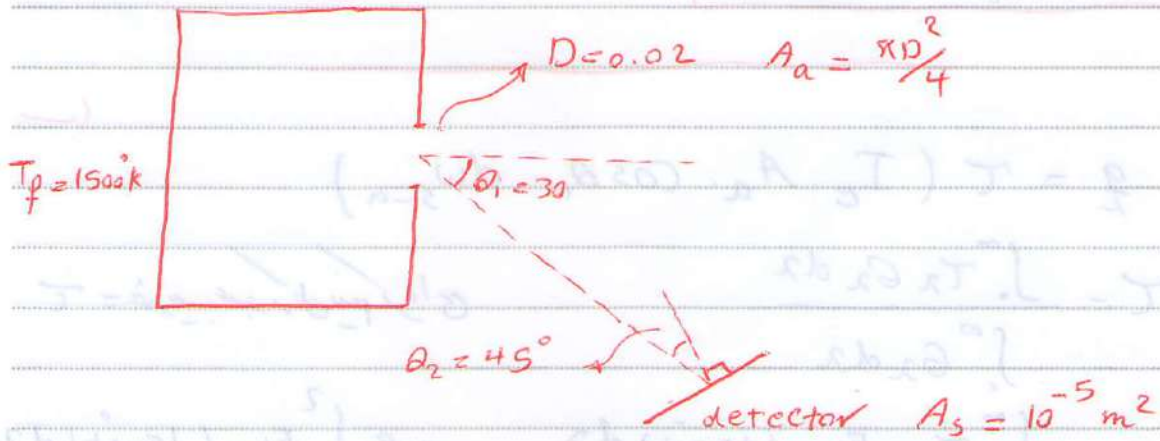 D=0.02 A_a = πD²/4
T_f = 1500°k
θ₁ = 30
θ₂ = 45°
detector A_s = 10⁻⁵ m²